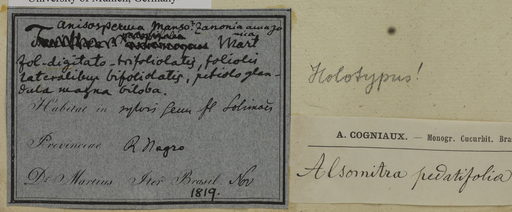 University of Munich, Germany
Anisosperma Manso? Zanonia amazo
nica
Mart
fol. digitato-trifoliatis, foliolis
lateralibus bifoliolatis, petiolo glan-
dula magna biloba.
Habitat in sylvis flum fl Solimoës
Provinciae R Negro
Dr Martius Iter Brasil. Nov
1819.
Holotypus!
A. COGNIAUX. — Monogr. Cucurbit. Bras
Alsomitra pedatifolia